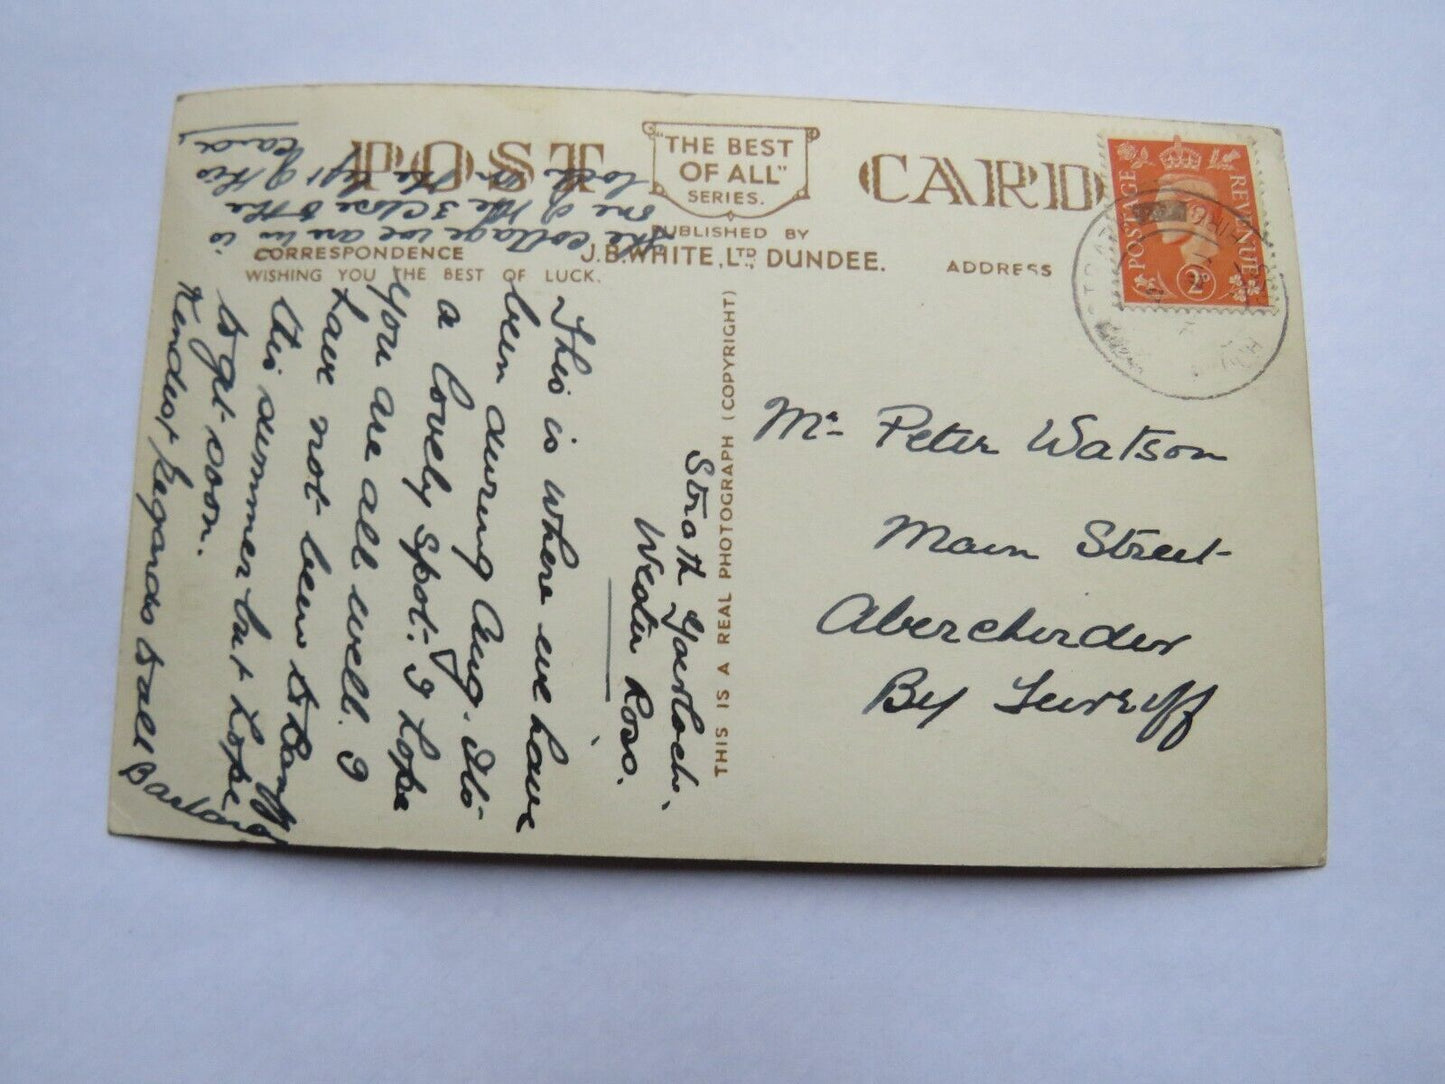 POST CARD
"THE BEST
OF ALL"
SERIES.
PUBLISHED BY
J.B.WHITE, LTD DUNDEE.
CORRESPONDENCE
ADDRESS
WISHING YOU THE BEST OF LUCK.
THIS IS A REAL PHOTOGRAPH (COPYRIGHT)
POSTAGE
REVENUE
2D
Strath Gairloch.
Wester Ross.
This is where we have
been during Aug. It's
a lovely spot. I hope
you are all well. I
have not been to Banff
this summer but hope
to get soon.
Kindest Regards to all
The cottage we are in is
one of the 3 close to the
loch on the left of this
Card.
Mr Peter Watson
Main Street
Aberchirder
By Turriff